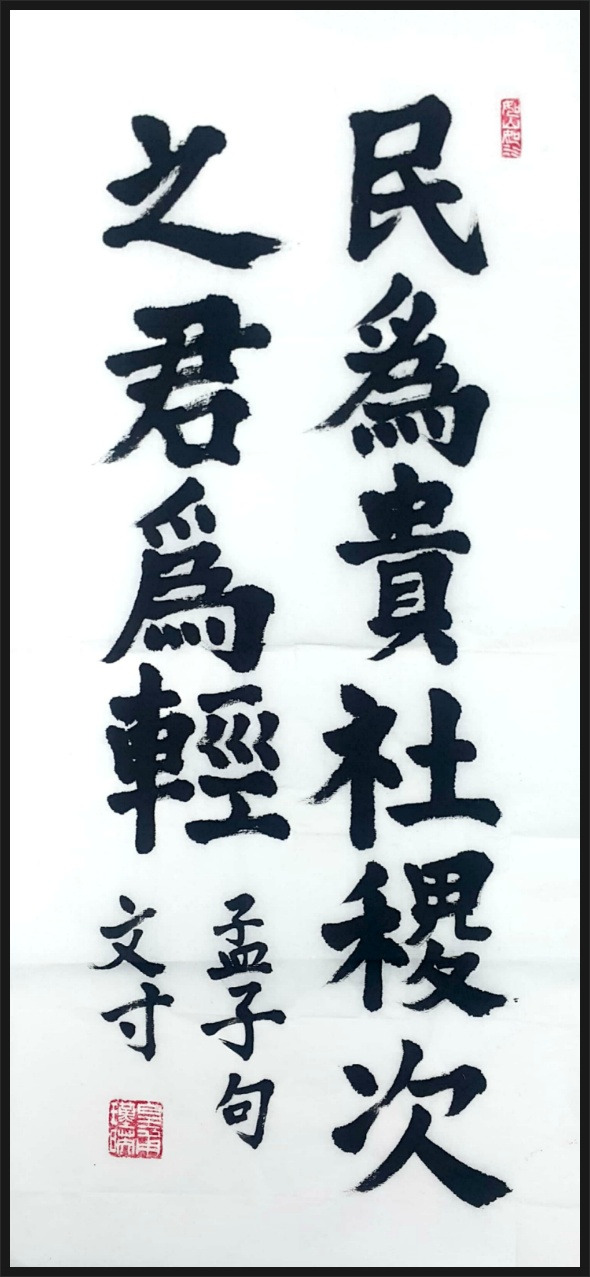 民為貴社稷次
之君為輕
孟子句
文寸